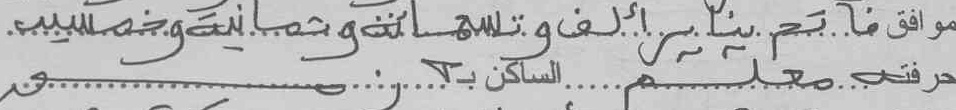 موافق فاتح يناير ألف وتسعمائة وثمانية وخمسين
حرفته معلم الساكن بـ